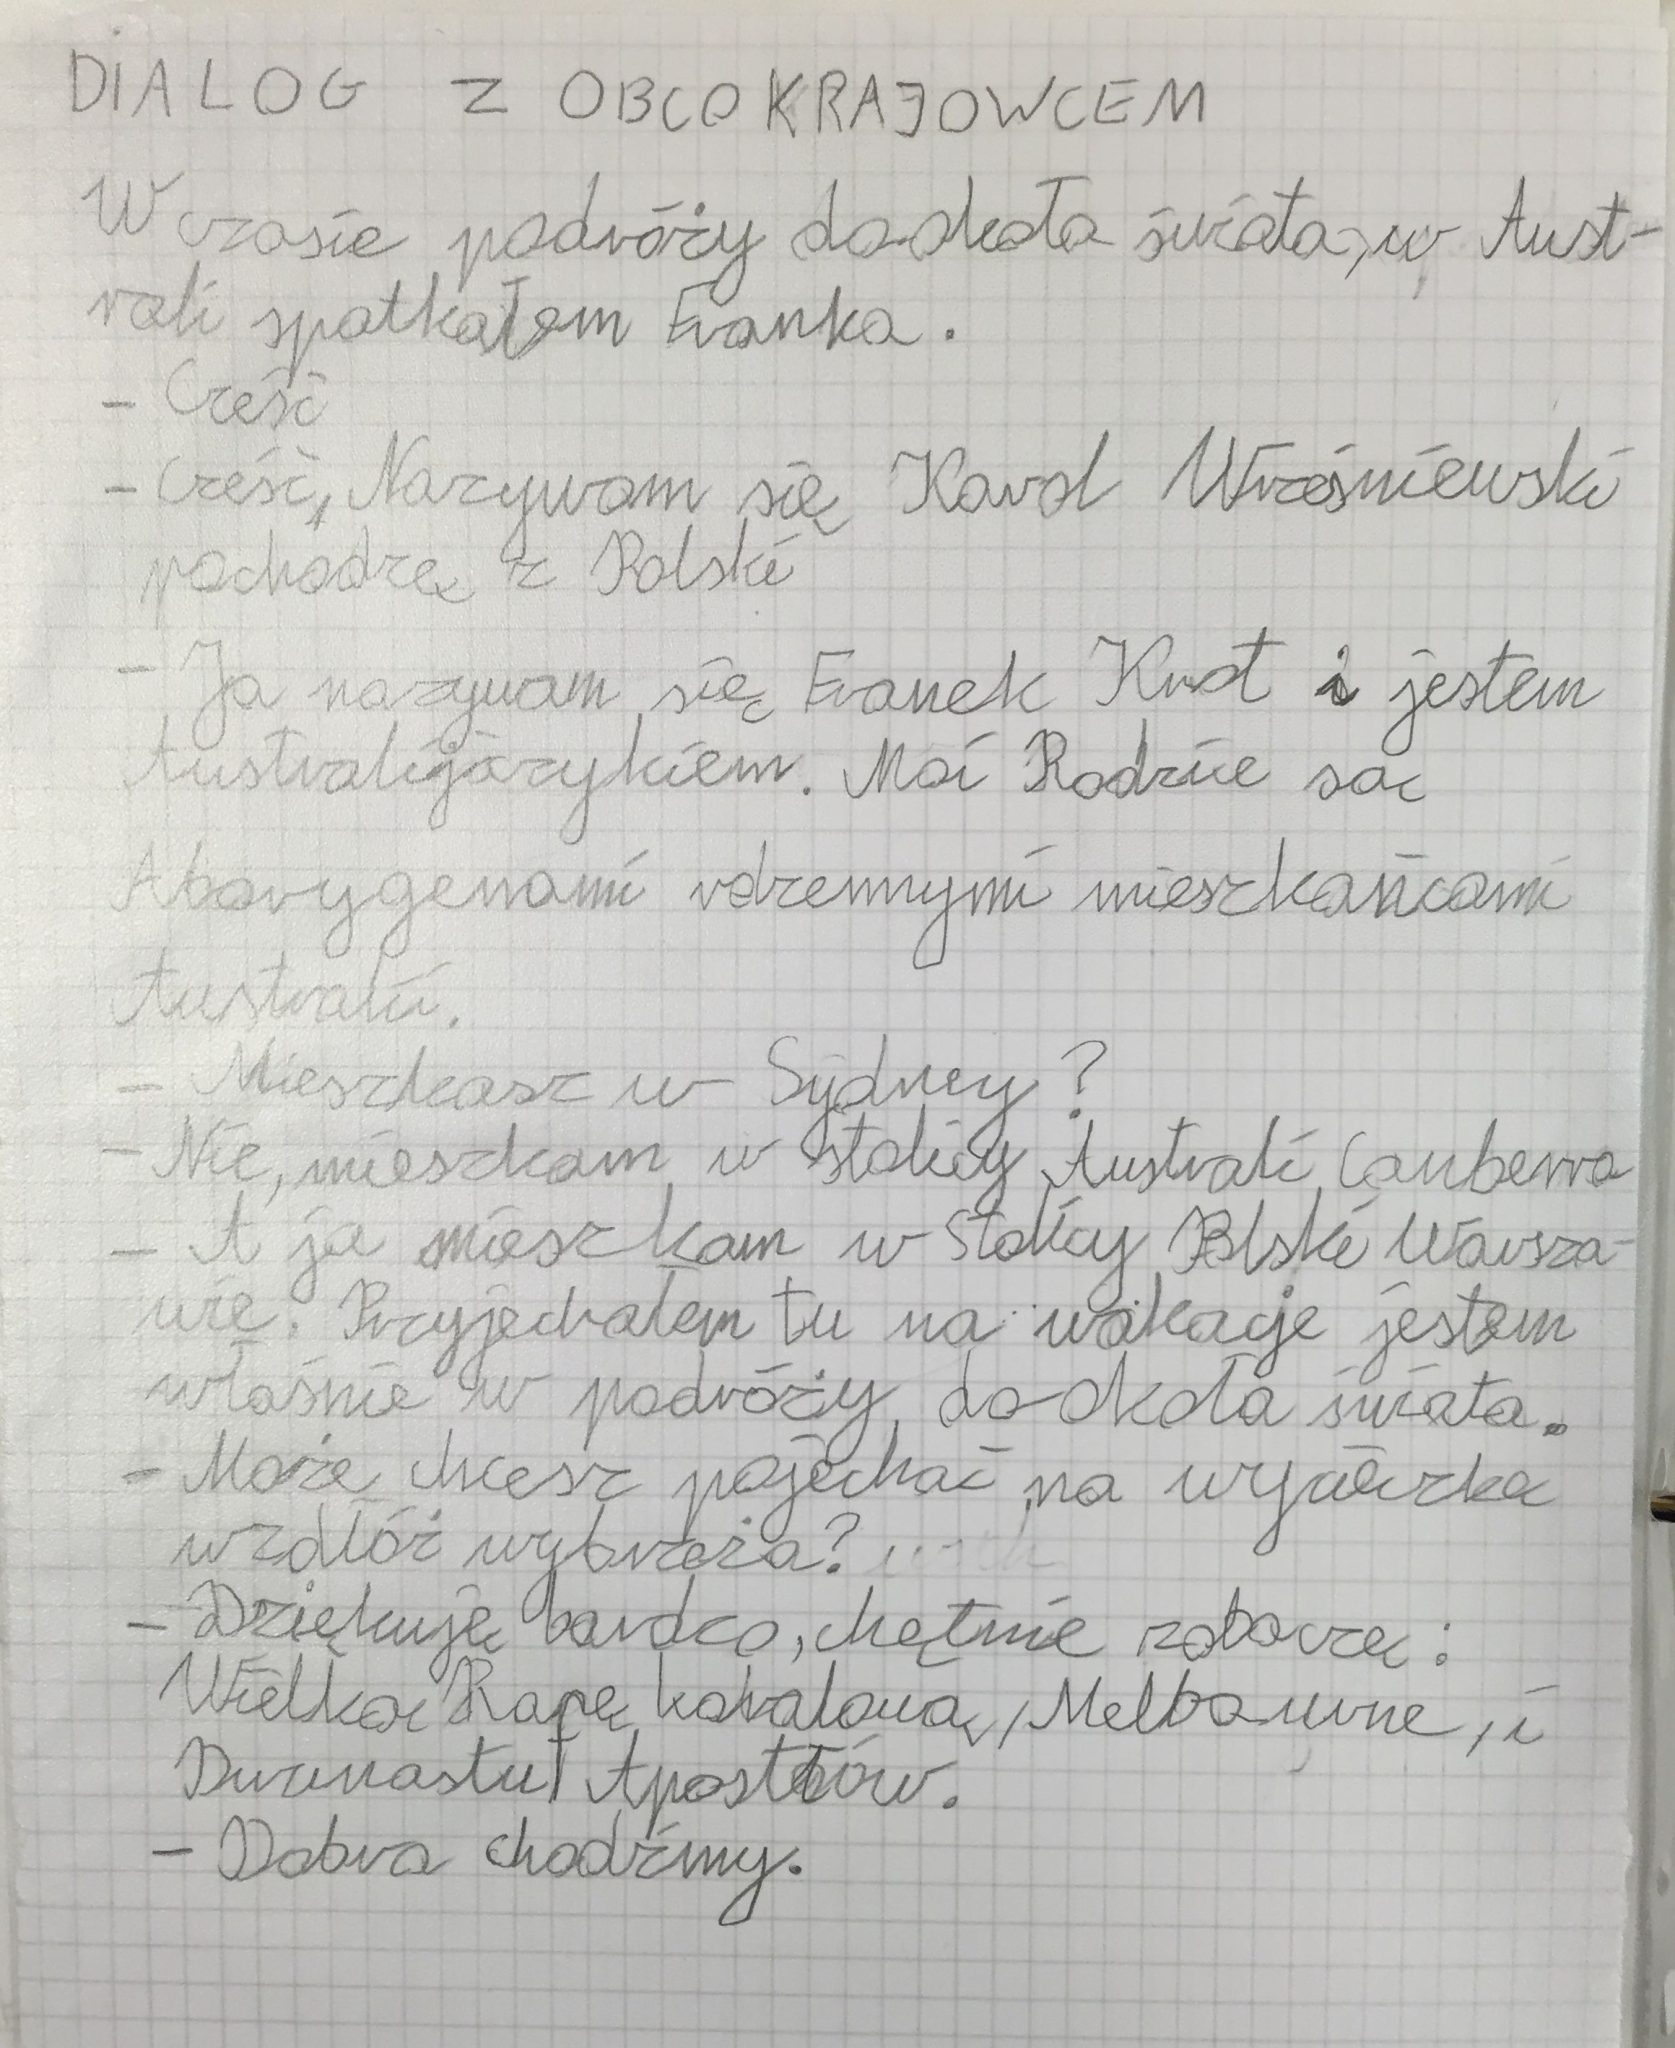 DIALOG Z OBCOKRAJOWCEM
W czasie podróży do okoła świata, w Aust-
rali spotkałem Evanka.
- Cześć
- Cześć, Nazywam się Karol Wrześniewski
pochodzę z Polski
- Ja nazywam się Evanek Knot i jestem
Australijczykiem. Moi Rodzice są
Aborygenami rdzennymi mieszkańcami
Australii.
- Mieszkasz w Sydney?
- Nie, mieszkam w stolicy Australi Canberra
- A ja mieszkam w Stolicy Polski Warsza-
wie. Przyjechałem tu na wakacje jestem
właśnie w podróży do-okoła świata.
- Może chcesz pojechać na wycieczkę
wzdłóż wybrzeża?
- Dziękuję bardzo, chętnie zobaczę:
Wielką Rafę koralową, Melbourne, i
Dwunastu Apostołów.
- Dobra chodźmy.